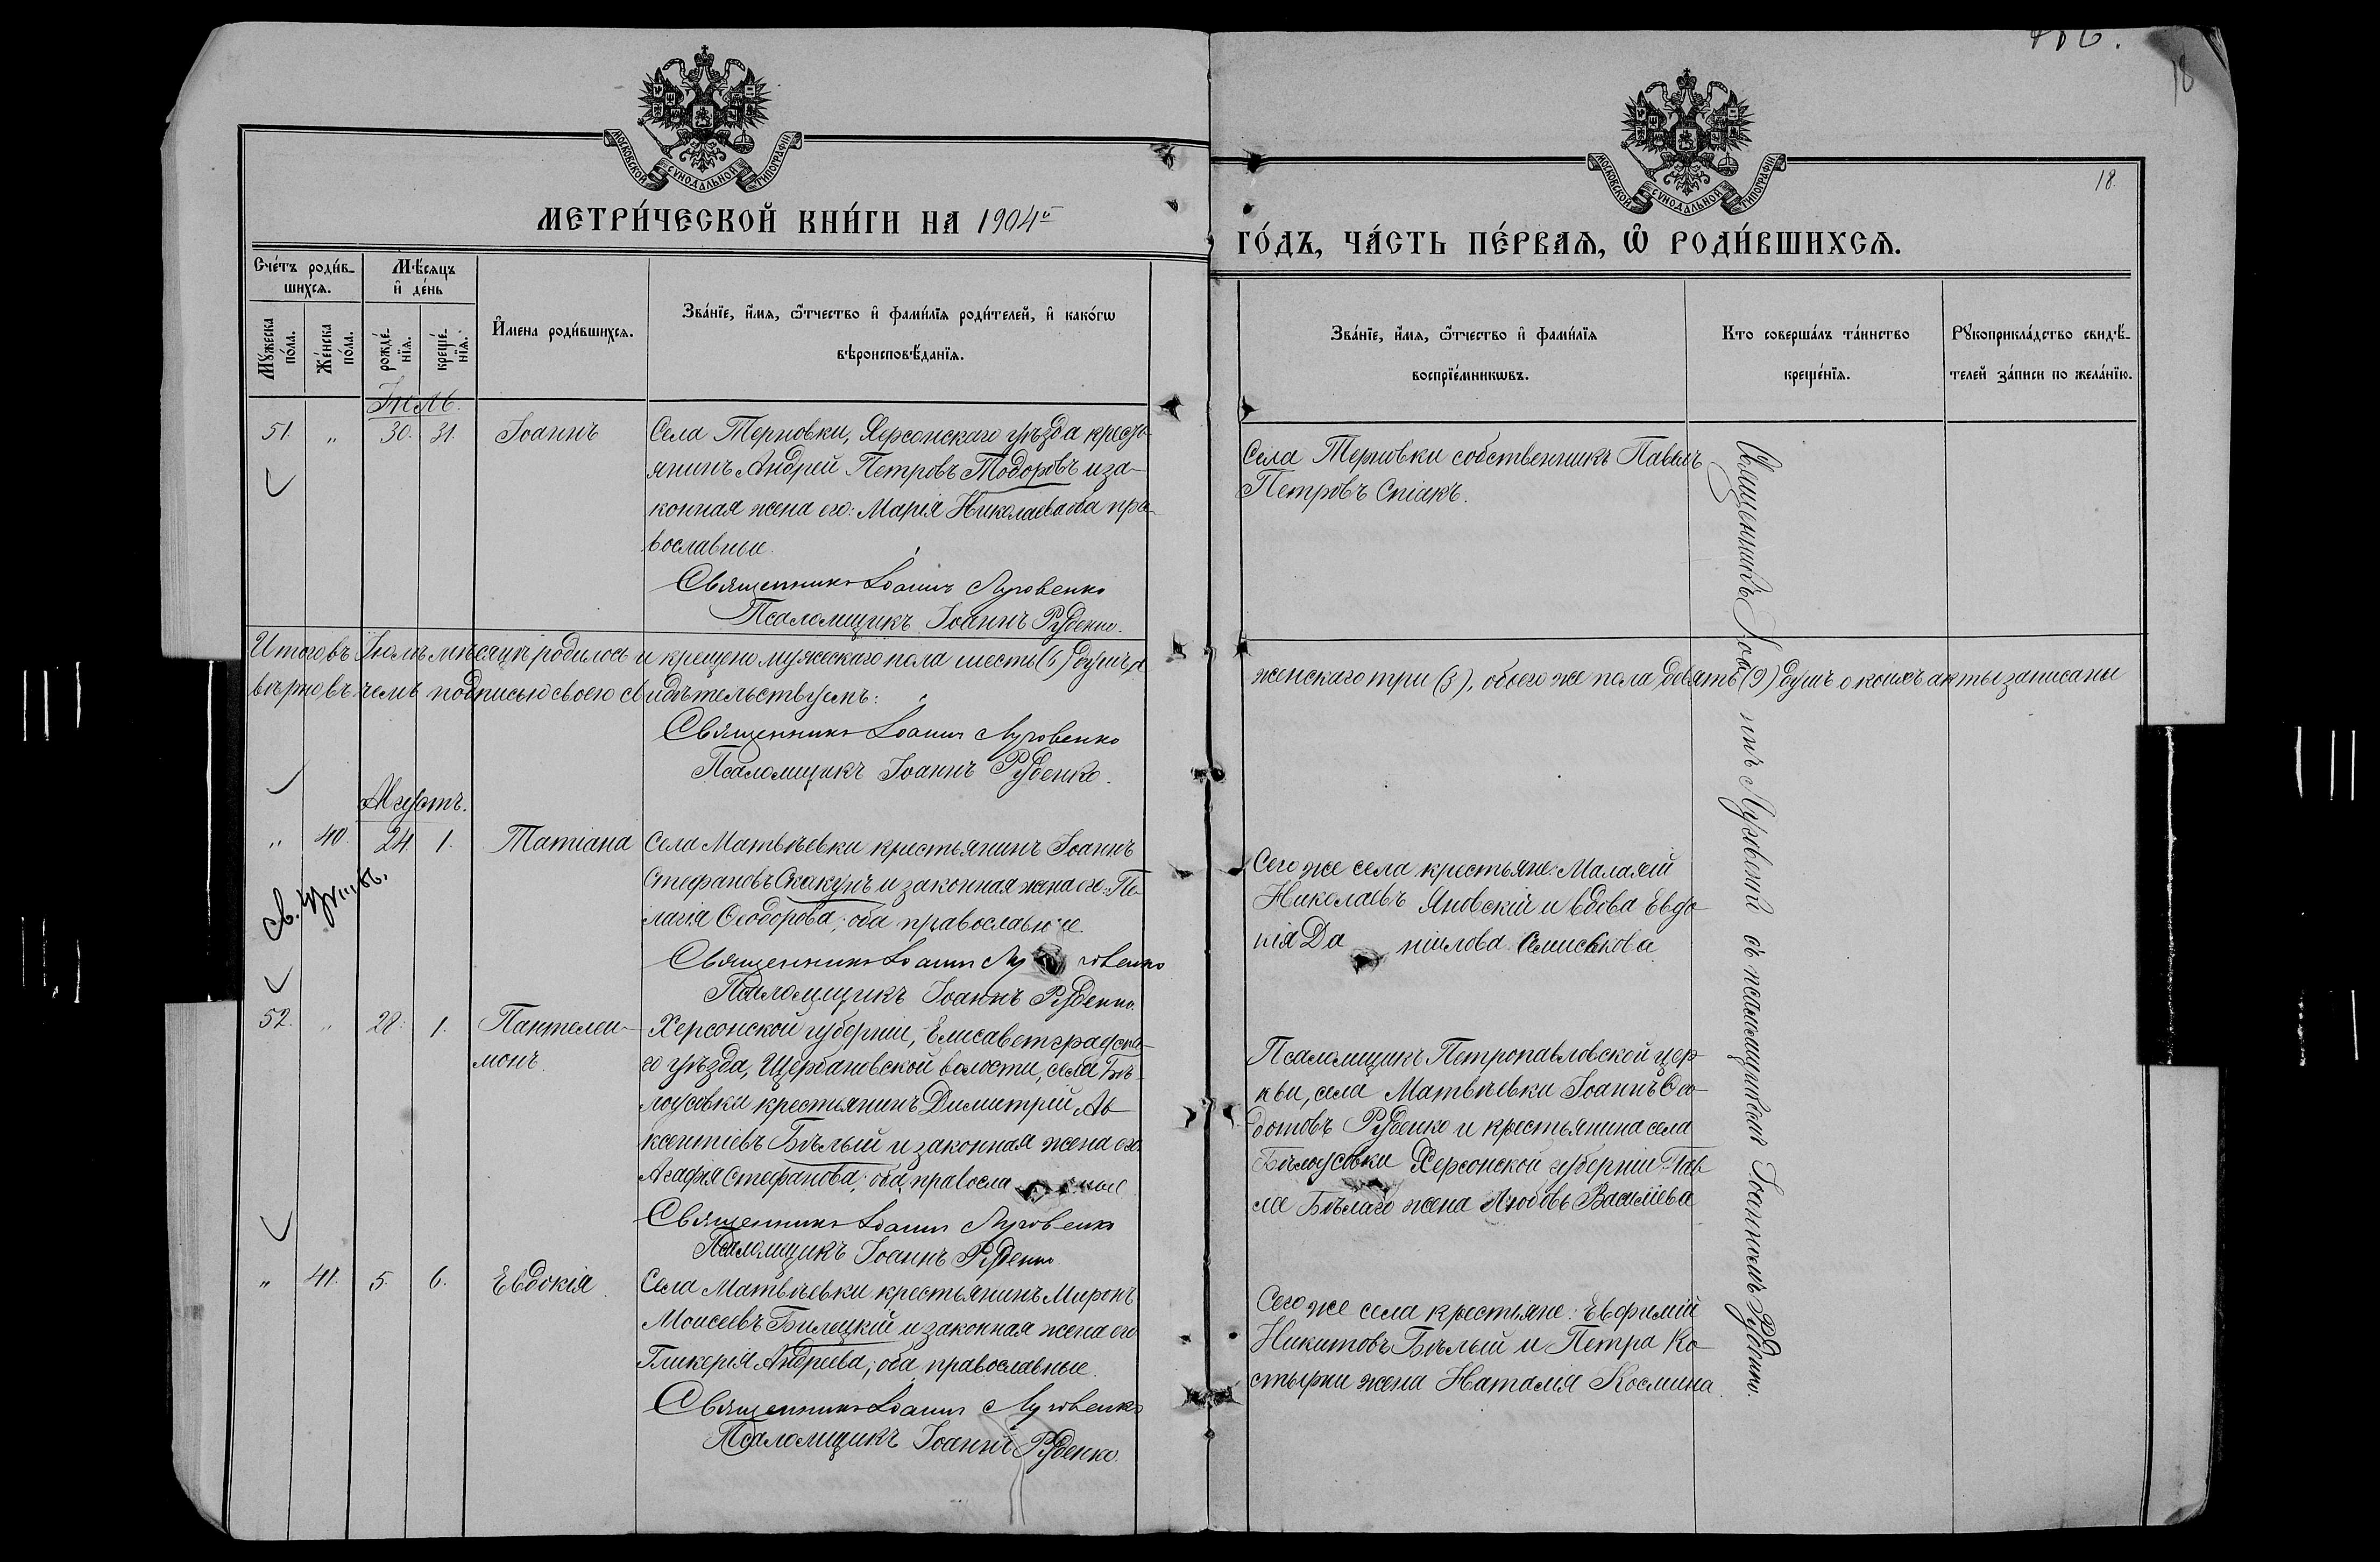 186.
18
МОСКОВСКОЙ СѴНОДАЛЬНОЙ ТИПОГРАФІИ
МОСКОВСКОЙ СѴНОДАЛЬНОЙ ТИПОГРАФІИ
18.
МЕТРИ́ЧЕСКОЙ КНИ́ГИ НА 1904й
ГО́ДЪ, ЧА́СТЬ ПЕ́РВАѦ, Ѡ҆ РОДИ́ВШИХСѦ.
Сче́тъ роди́в-
шихсѧ.
Мѣ́сѧцъ
и҆ де́нь
Мꙋ́жеска
по́ла.
Же́нска
по́ла.
рожде́-
нїѧ.
креще́-
нїѧ.
И҆мена роди́вшихсѧ.
Зва́нїе, и҆́мѧ, ѻ҆́тчество и҆ фами́лїѧ роди́телей, и҆ како́гѡ
вѣроисповѣ́данїѧ.
Зва́нїе, и҆́мѧ, ѻ҆́тчество и҆ фами́лїѧ
воспрїе́мникѡвъ.
Кто соверша́лъ та́инство
креще́нїѧ.
Рꙋкоприкла́дство свидѣ́-
телей за́писи по жела́нїю.
Іюль.
51. " 30. 31. Іоаннъ
Села Терновки, Херсонскаго уѣзда кресть-
янинъ Андрей Петровъ Тодоровъ и за-
конная жена его: Марія Николаева оба пра-
вославные.
Священникъ Іоаннъ Луговенко
Псаломщикъ Іоаннъ Руденко.
Села Терновки собственникъ Павелъ
Петровъ Спіакъ.
Итого въ Іюлѣ мѣсяцѣ родилось и крещено мужескаго пола шесть (6) душъ, а
женскаго три (3), обоего же пола девять (9) душъ о коихъ акты записаны
вѣрно въ чемъ подписью своею свидѣтельствуемъ:
Священникъ Іоаннъ Луговенко
Псаломщикъ Іоаннъ Руденко.
Августъ.
" 40. 24. 1. Татіана
Села Матвѣевки крестьянинъ Іоаннъ
Стефановъ Скакунъ и законная жена его: Пе-
лагія Ѳеодорова; оба православные.
Священникъ Іоаннъ Луговенко
Псаломщикъ Іоаннъ Руденко.
Сего же села крестьяне: Малахій
Николаевъ Яновскій и вдова Евдо-
кія Даніилова Семисенкова
св.
52. " 28. 1. Пантелеи-
монъ.
Херсонской губерніи, Елисаветградска-
го уѣзда, Щербановской волости, села Бѣ-
лоусовки крестьянинъ Димитрій Ав-
ксентіевъ Бѣлый и законная жена его
Агафія Стефанова; оба православные
Священникъ Іоаннъ Луговенко
Псаломщикъ Іоаннъ Руденко.
Псаломщикъ Петропавловской цер-
кви, села Матвѣевки Іоаннъ Ѳео-
дотовъ Руденко и крестьянина села
Бѣлоусовки Херсонской губерніи Пав-
ла Бѣлаго жена Любовь Василіева
" 41. 5. 6. Евдокія.
Села Матвѣевки крестьянинъ Миронъ
Моисеевъ Билецкій и законная жена его
Гликерія Андреева; оба православные.
Священникъ Іоаннъ Луговенко
Псаломщикъ Іоаннъ Руденко.
Сего же села крестьяне: Евфимій
Никитовъ Бѣлый и Петра Ко-
стырки жена Наталія Космина.
Священникъ Іоаннъ Луговенко съ псаломщикомъ Іоанномъ Руденко.